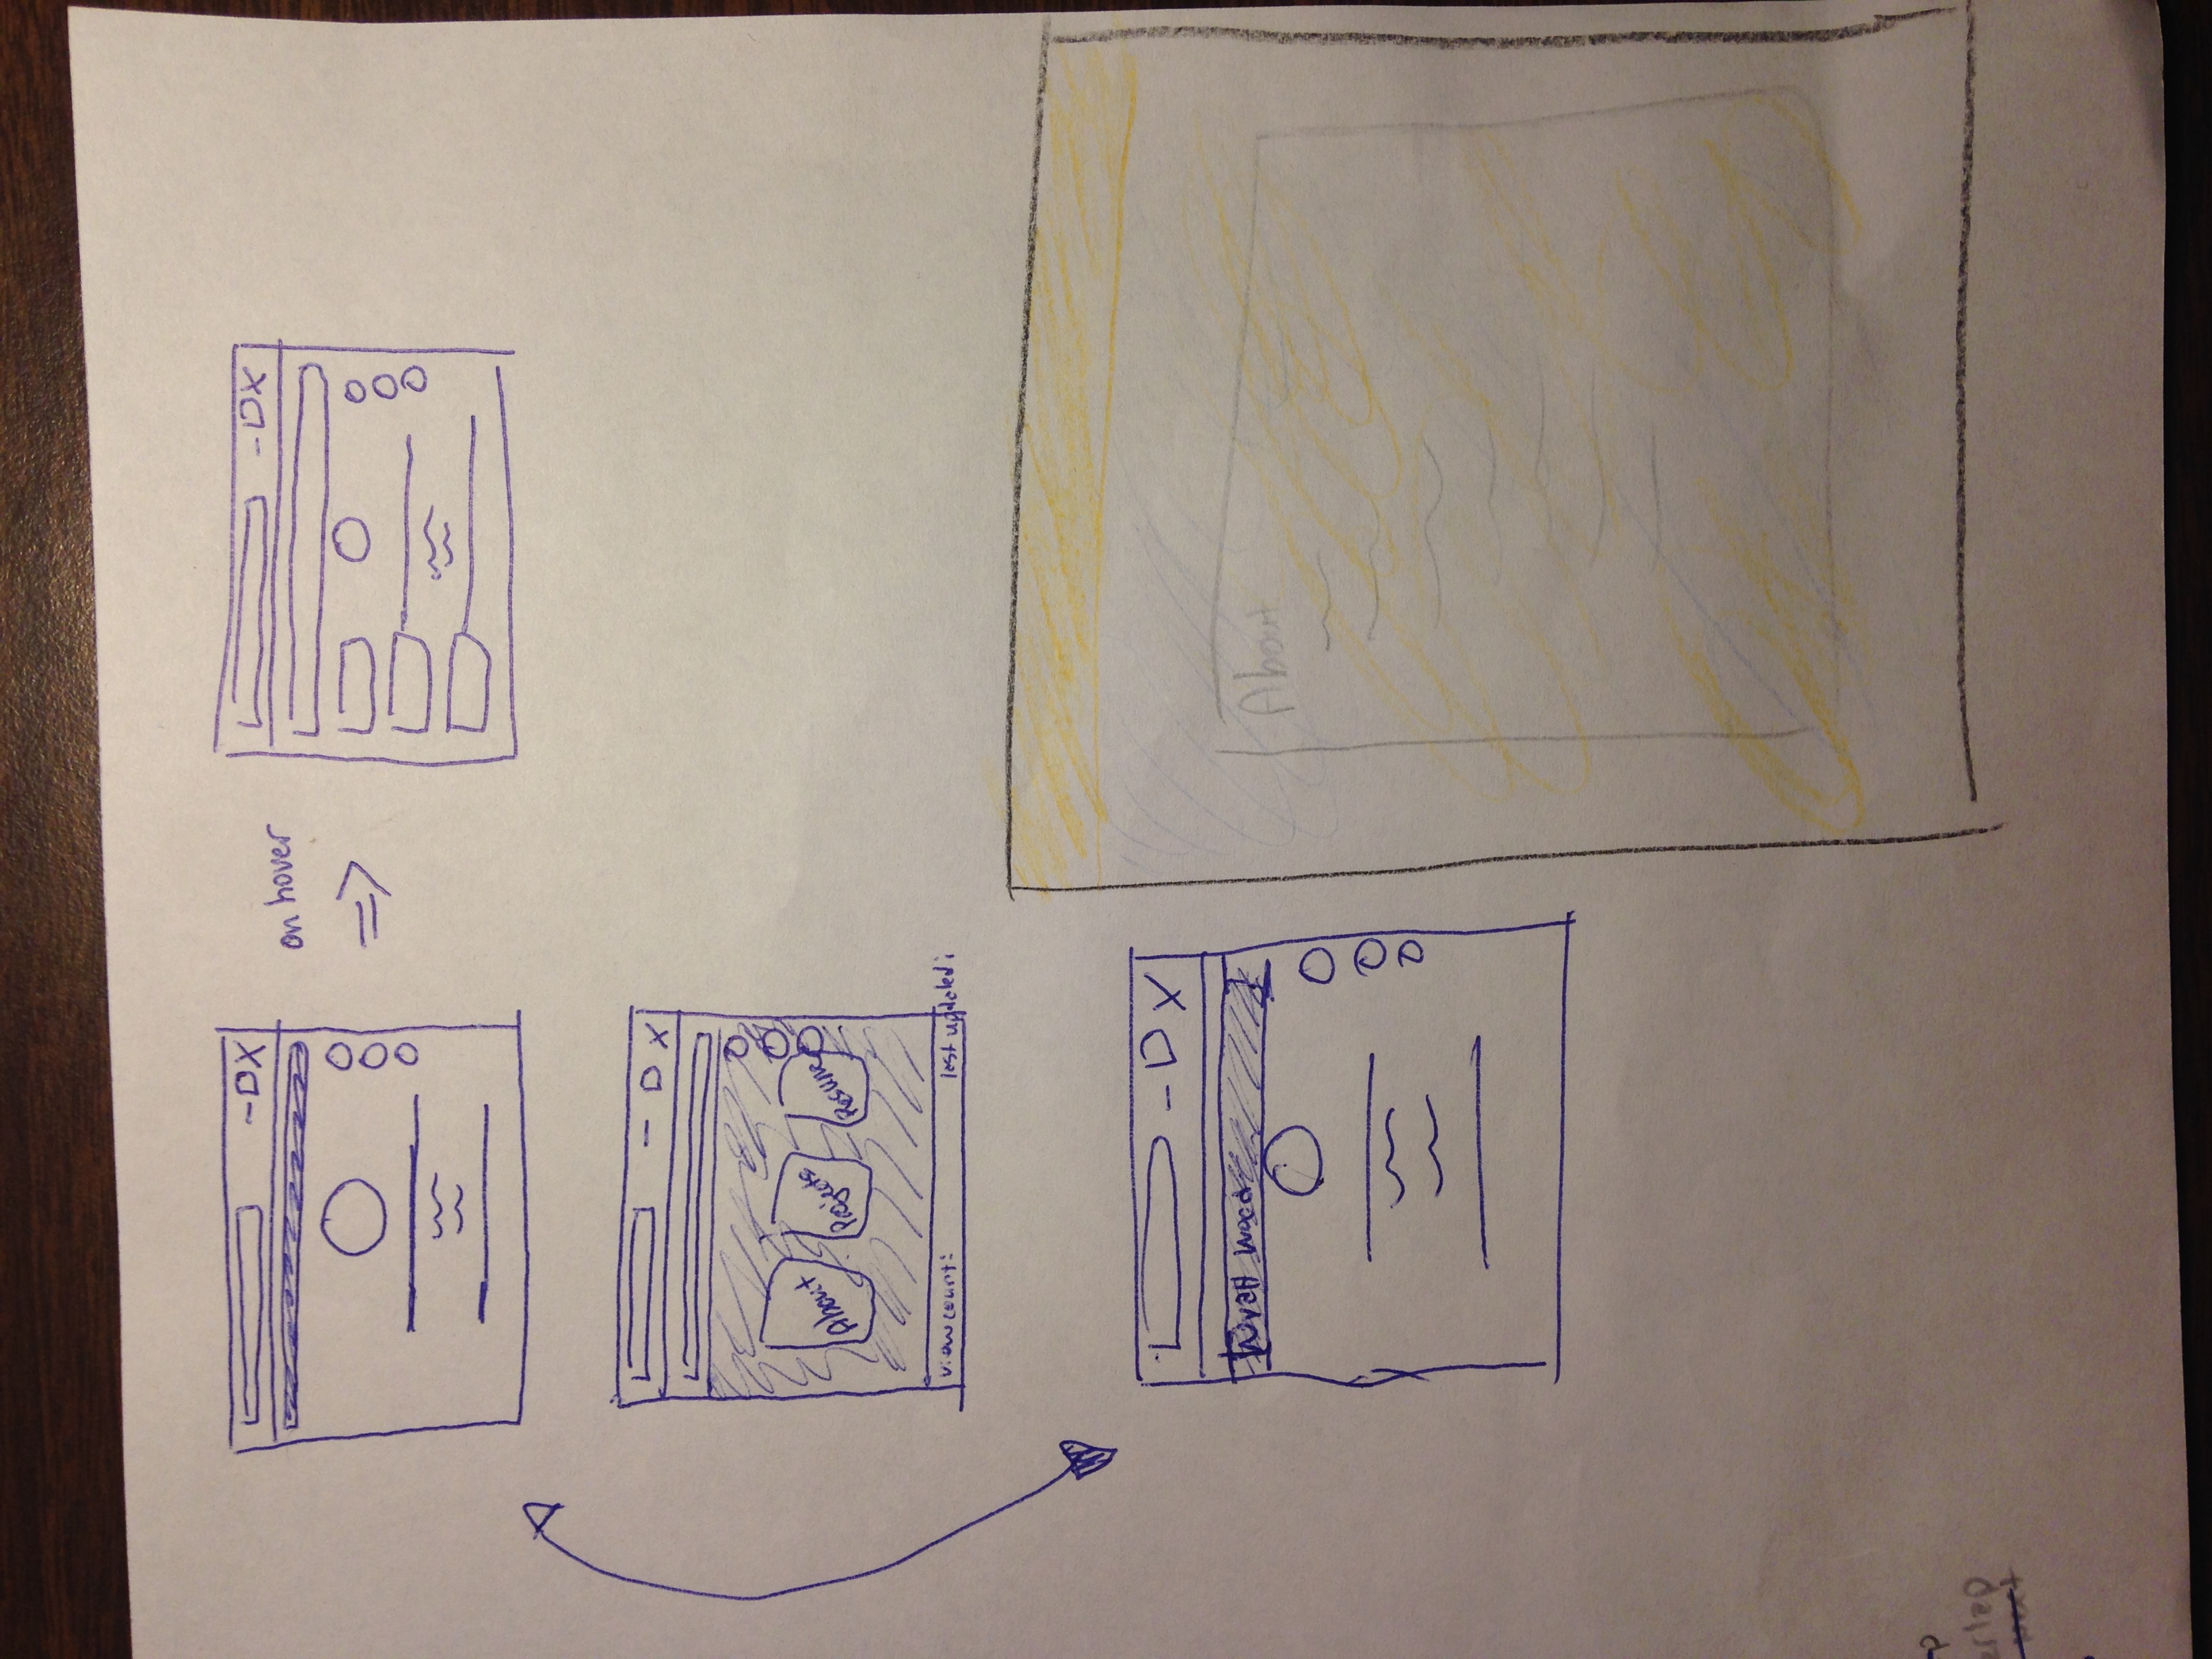 on hover
About
Projects
Resume
view count:
last updated:
Wyatt Wood
About
erlap